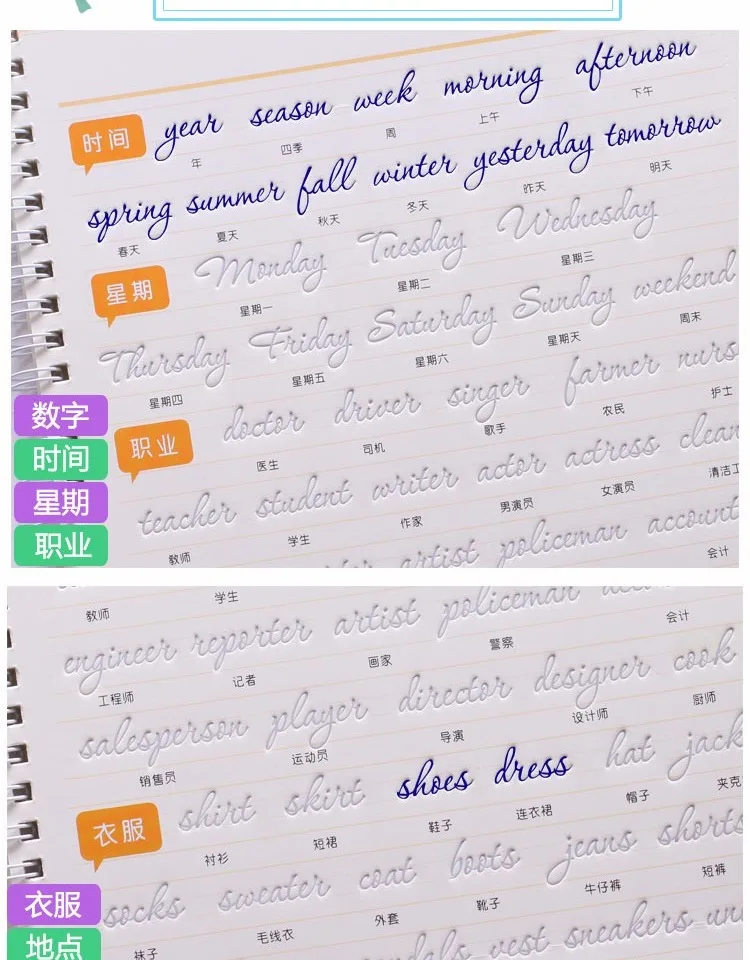 year season week morning afternoon
时间 年 四季 周 上午 下午
spring summer fall winter yesterday tomorrow
春天 夏天 秋天 冬天 昨天 明天
Monday Tuesday Wednesday
星期 星期一 星期二 星期三
Thursday Friday Saturday Sunday weekend
星期四 星期五 星期六 星期天 周末
doctor driver singer farmer nurs
职业 医生 司机 歌手 农民 护士
teacher student writer actor actress clean
教师 学生 作家 男演员 女演员 清洁工
artist policeman account
会计
数字
时间
星期
职业
教师 学生 会计
engineer reporter artist policeman
工程师 记者 画家 警察
salesperson player director designer cook
销售员 运动员 导演 设计师 厨师
shirt skirt shoes dress hat jack
衣服 衬衫 短裙 鞋子 连衣裙 帽子 夹克
socks sweater coat boots jeans shorts
袜子 毛线衣 外套 靴子 牛仔裤 短裤
vest sneakers
衣服
地点